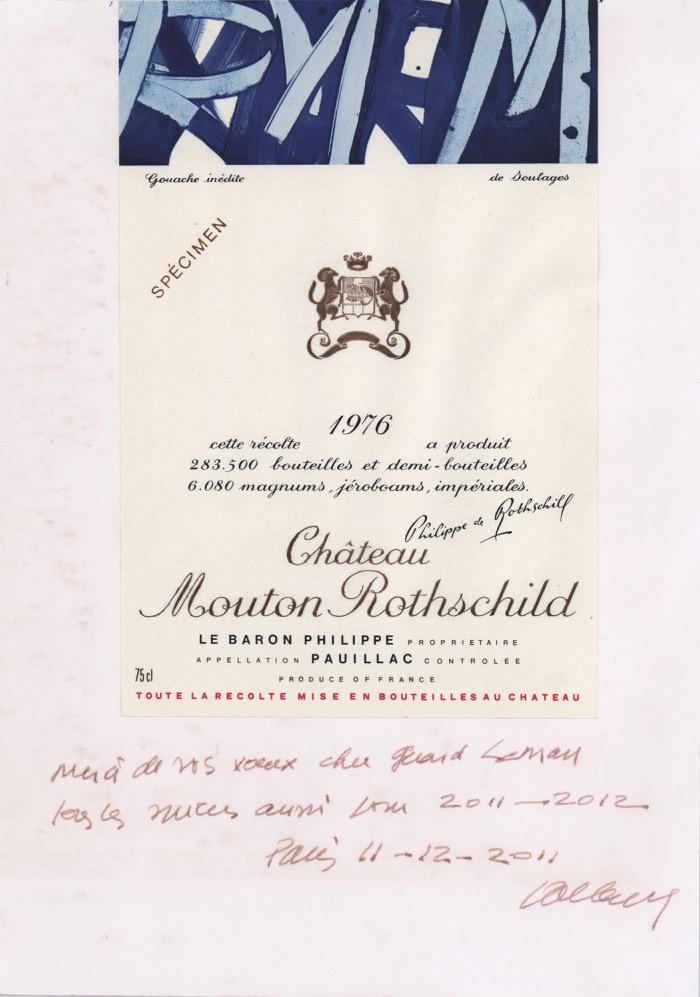 Gouache inédite de Soulages
SPÉCIMEN
1976
cette récolte a produit
283.500 bouteilles et demi-bouteilles
6.080 magnums, jéroboams, impériales.
Philippe de Rothschild
Château
Mouton Rothschild
LE BARON PHILIPPE PROPRIETAIRE
APPELLATION PAUILLAC CONTROLEE
75 cl PRODUCE OF FRANCE
TOUTE LA RECOLTE MISE EN BOUTEILLES AU CHATEAU
de vos voeux cher
aussi pour 2011 – 2012
Paris 11-12-2011